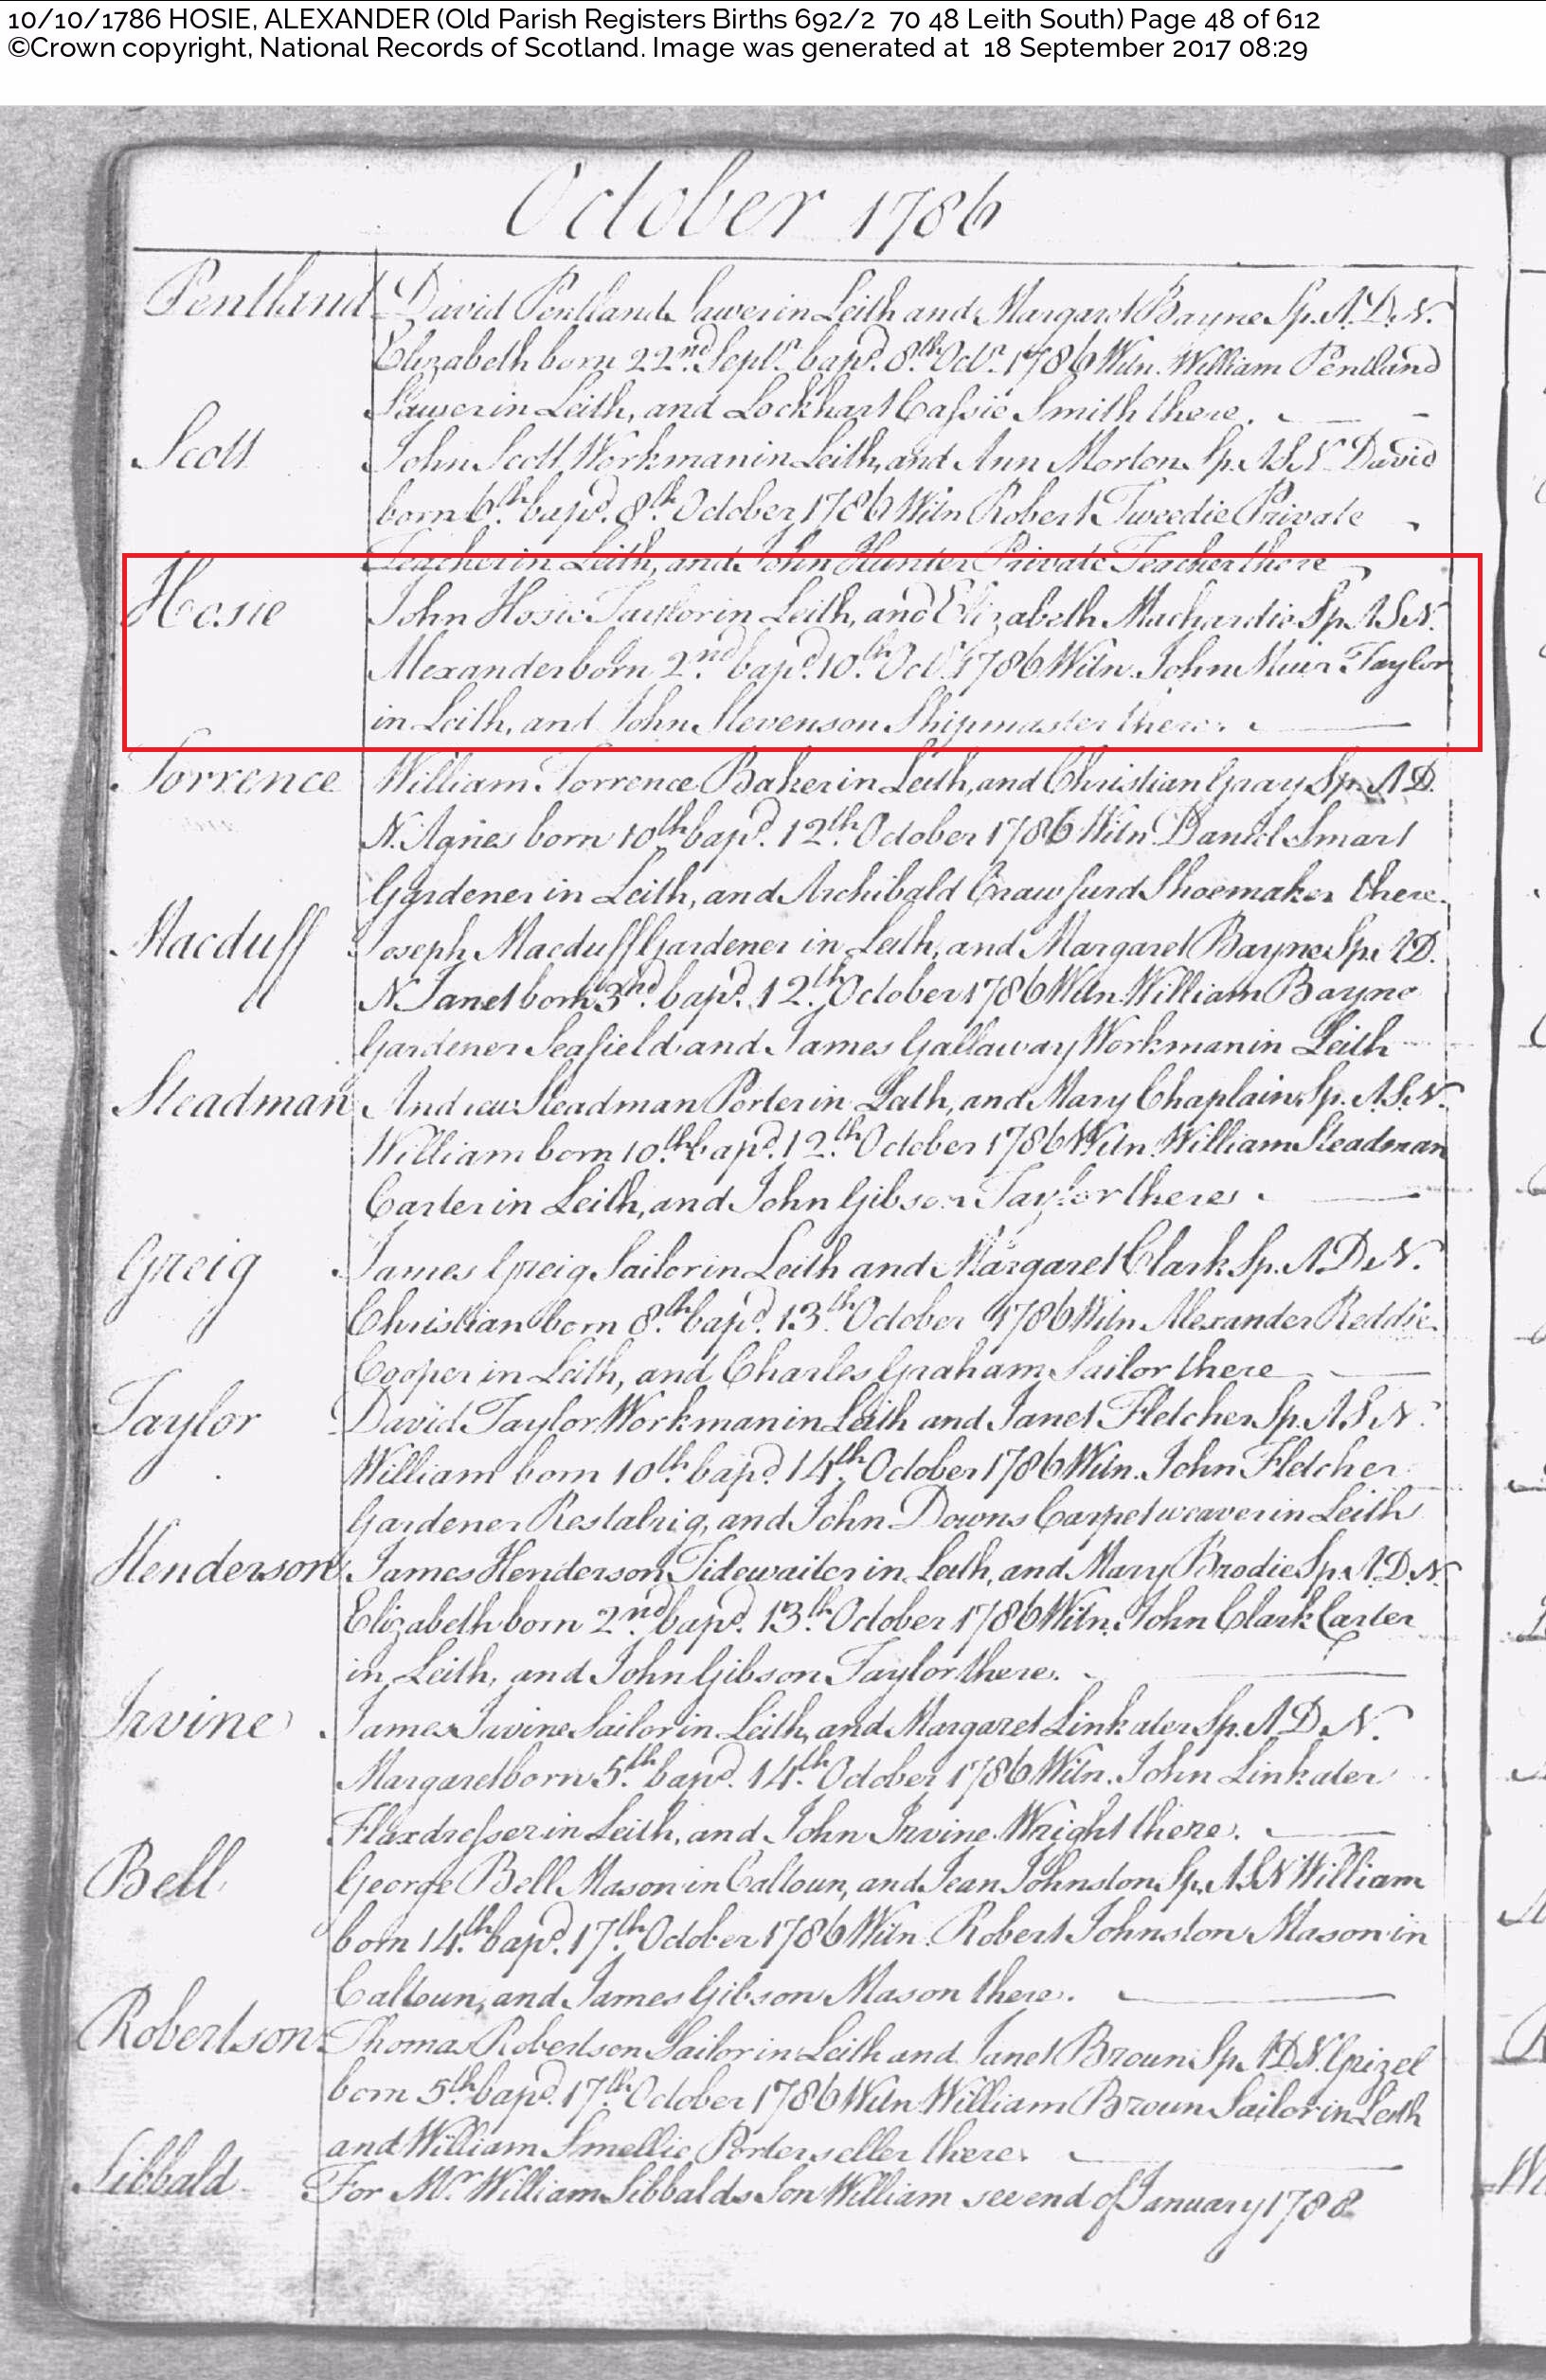 10/10/1786 HOSIE, ALEXANDER (Old Parish Registers Births 692/2 70 48 Leith South) Page 48 of 612
©Crown copyright, National Records of Scotland. Image was generated at 18 September 2017 08:29
October 1786
Pentland David Pentland Sawer in Leith and Margaret Bayne Sp. A. D. N.
Elizabeth born 22nd. Septr. bapd. 8th. Octr. 1786 Witn. William Pentland
Sawer in Leith, and Lockhart Cassie Smith there.
Scott John Scott Workman in Leith, and Ann Morton Sp. A S N David
born 6th bapd. 8th October 1786 Witn Robert Tweedie Private
Teacher in Leith, and John Hunter Private Teacher there
Hosie John Hosie Taylor in Leith, and Elizabeth Machardie Sp. A S N.
Alexander born 2nd. bapd. 10th. Octr. 1786 Witn. John Muir Taylor
in Leith, and John Stevenson Shipmaster there.
Torrence William Torrence Baker in Leith, and Christian Gray Sp. A D.
N. Agnes born 10th bapd. 12th. October 1786 Witn. Daniel Smart
Gardener in Leith, and Archibald Crawfurd Shoemaker there.
Macduff Joseph Macduff Gardener in Leith, and Margaret Bayne Sp. A D.
N Janet born 3nd. bapd. 12th. October 1786 Witn. William Bayne
Gardener Seafield and James Gallaway Workman in Leith
Steadman Andrew Steadman Porter in Leith, and Mary Chaplain Sp. A. S. N.
William born 10th. bapd. 12th. October 1786 Witn. William Steadman
Carter in Leith, and John Gibson Taylor there
Greig James Greig Sailor in Leith and Margaret Clark Sp. A. D. N.
Christian born 8th. bapd. 13th. October 1786 Witn Alexander Reddie
Cooper in Leith, and Charles Graham Sailor there
Taylor David Taylor Workman in Leith and Janet Fletcher Sp. A. S. N.
William born 10th. bapd. 14th. October 1786 Witn. John Fletcher
Gardener Restalrig, and John Downs Carpet weaver in Leith
Henderson James Henderson Tidewaiter in Leith, and Mary Brodie Sp. A. D. N.
Elizabeth born 2nd. bapd. 13th. October 1786 Witn. John Clark Carter
in Leith, and John Gibson Taylor there.
Irvine James Irvine Sailor in Leith, and Margaret Linkater Sp. A D. N.
Margaret born 5th. bapd. 14th. October 1786 Witn. John Linkater
Flaxdresser in Leith, and John Irvine Wright there.
Bell George Bell Mason in Caltoun, and Jean Johnston Sp. A S N William
born 14th. bapd. 17th. October 1786 Witn. Robert Johnston Mason in
Caltoun, and James Gibson Mason there.
Robertson Thomas Robertson Sailor in Leith and Janet Broun Sp. A D N. Grizel
born 5th. bapd. 17th. October 1786 Witn William Broun Sailor in Leith
and William Smellie Porterseller there.
Sibbald For Mr. William Sibbalds Son William see end of January 1788